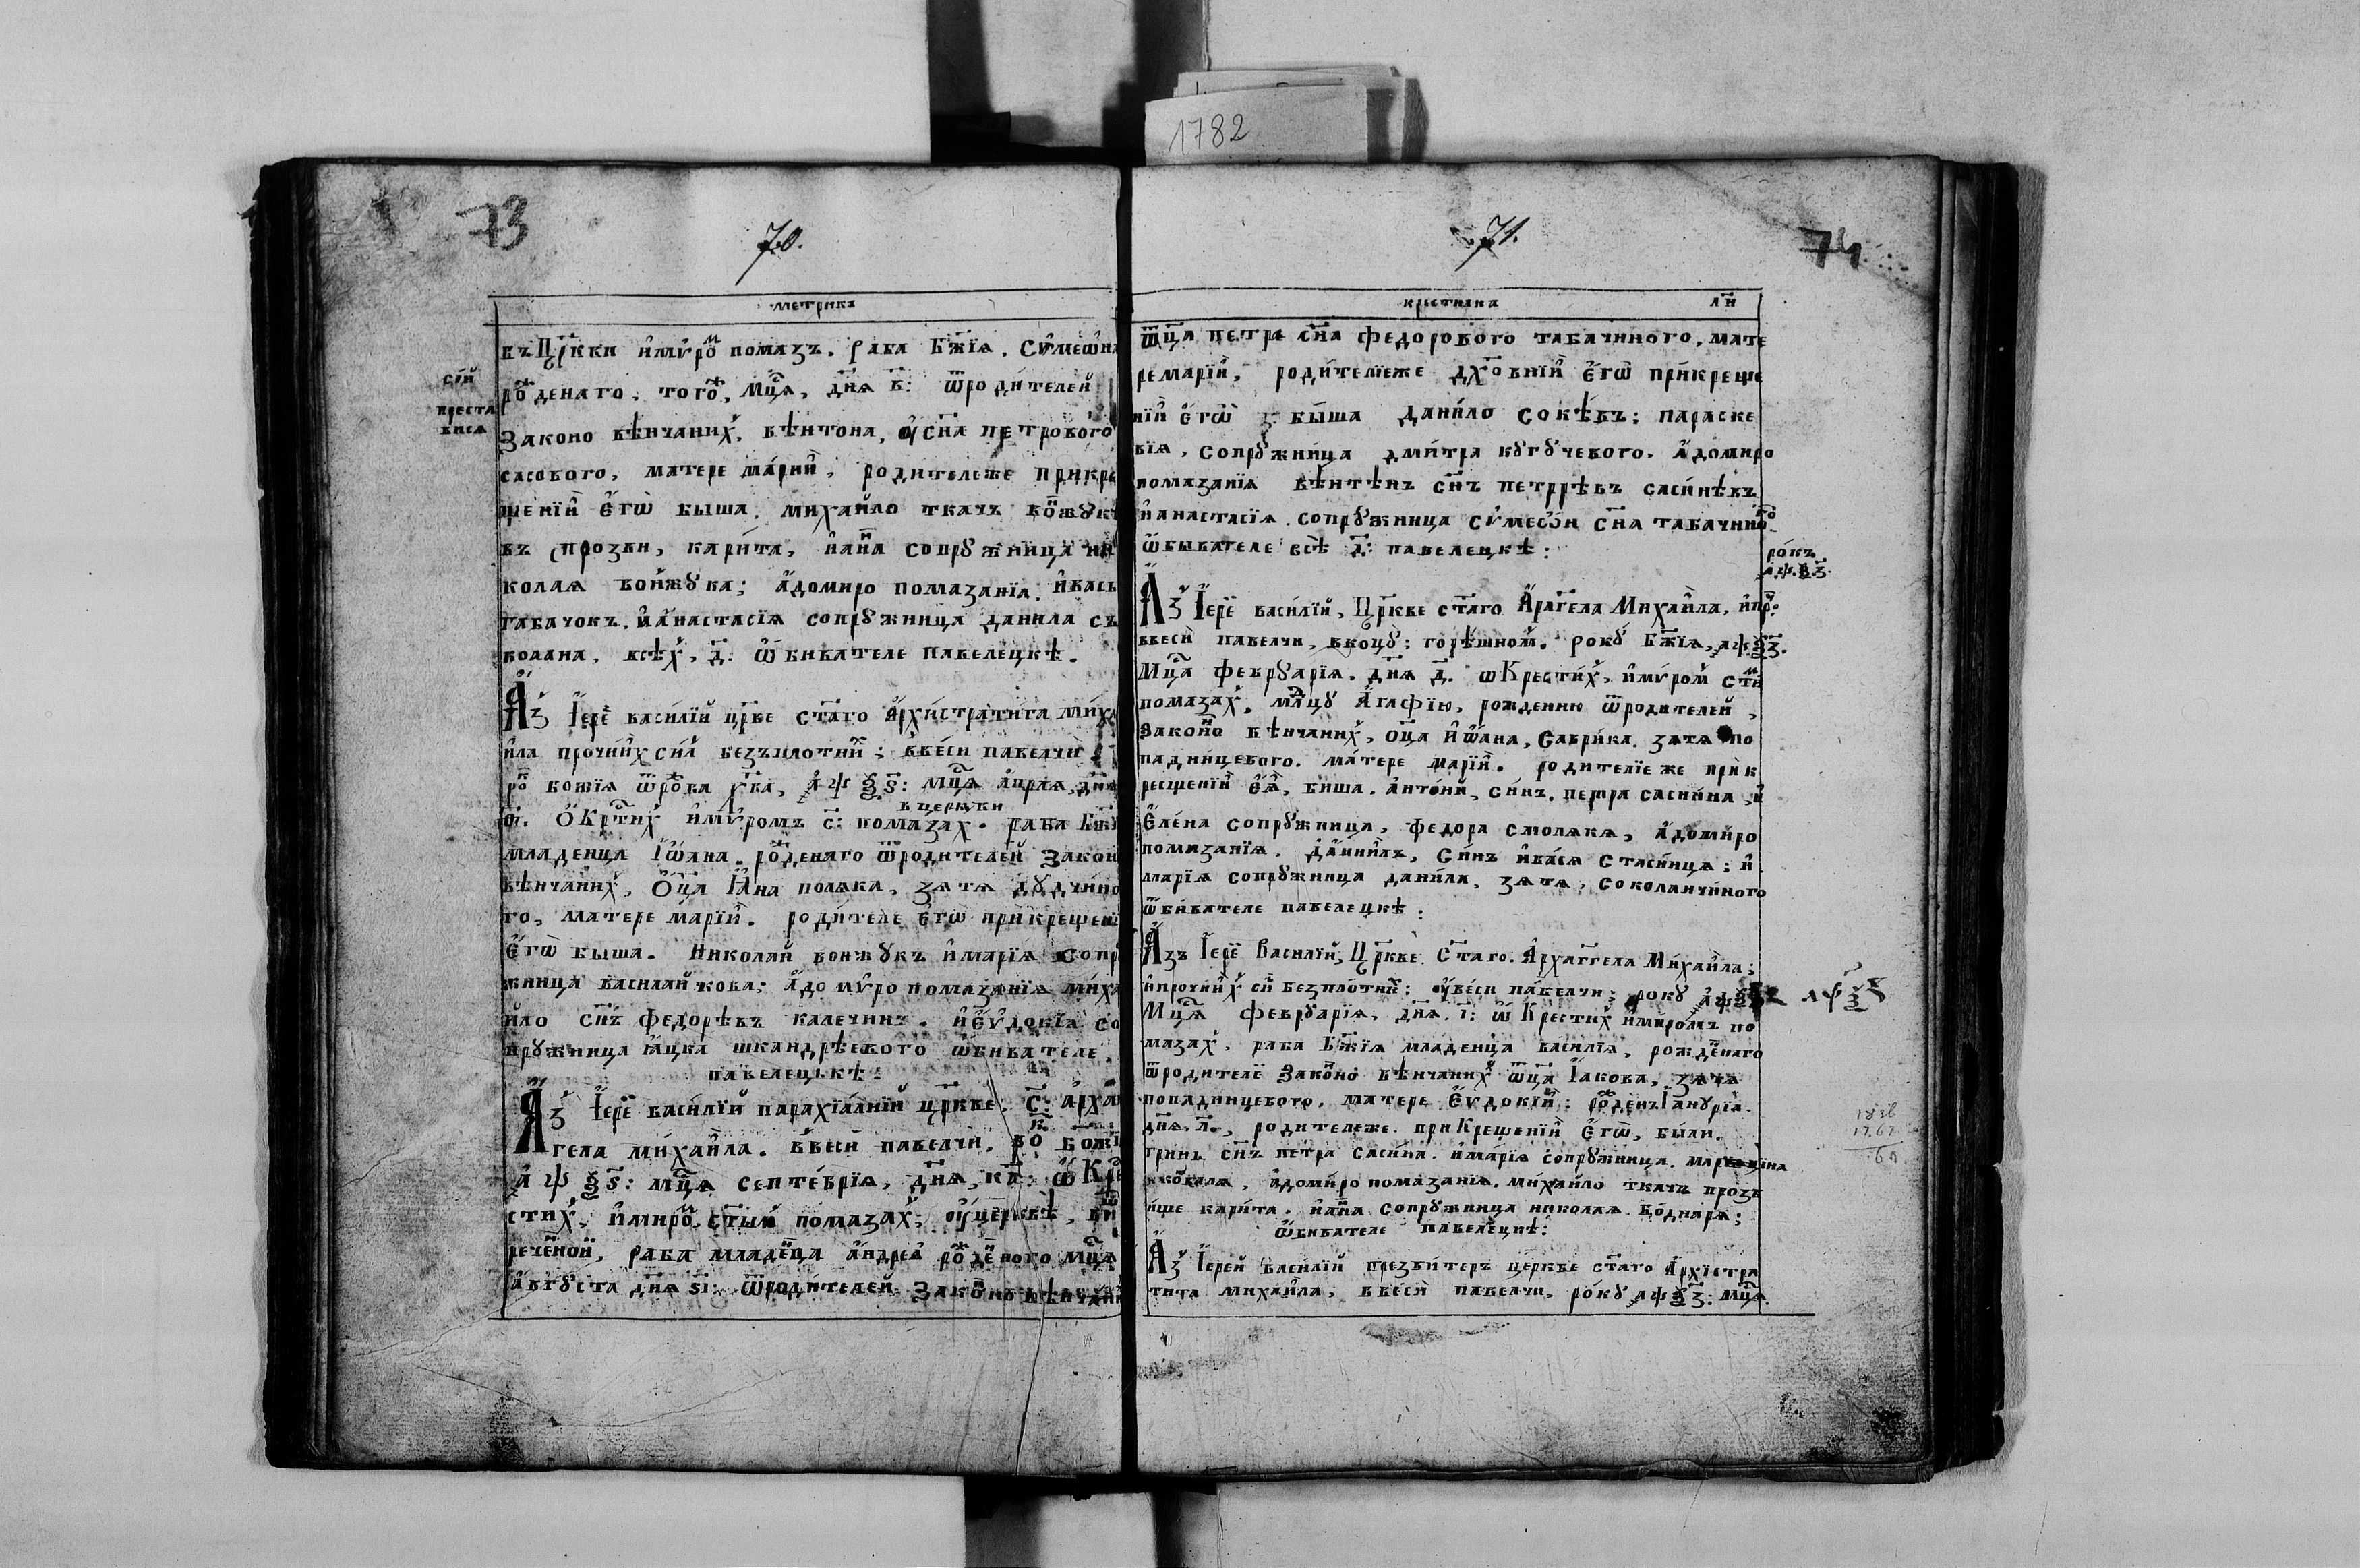 1782
73
70.
метрика
сїй
преста
вися
въ Цр҃кви и҆мѵро̑м помазъ. раба Бж҃їѧ. Сѵмеѡ҆на
ро̑жденаго, того̑ж, мц҃ѧ, дн҃ѧ в҃: ѿродителей
Законо вѣнчаних̾, вѣнтона, ѹ҆ сн҃а петрового
сасового, матере марии҆, родитележе прикре
щенїи҆ є҆гѡ̀ быша. михайло ткачъ
въ прозви, карита, и҆ а҆нна сопрꙋжница ни
колаѧ войжꙋка; а҆домиро помазанїѧ. и҆вась
табачокъ. и҆ а҆настасїѧ сопрꙋжница данила съ
колана, всѣх̾, д҃: ѡ҆бивателе павелецкѣ.
А҆з̾ І҆ере̑й василїй цр҃ве ст҃аго а҆рхистратига миха
ила прочїи҆х сил̾ безъплотни̑х; ввеси павелчи
ро̑к божїѧ ѿро̑жва , а҆ѱѯѕ: мц҃ѧ априлѧ, дн҃ѧ
в церкви
Ѻ҆Кр҃тих̾ и҆мѵромъ с: помазах. раба Бж҃їѧ
младенца І҆ѡ҆ана. ро̑жденаго ѿродителей закон
вѣнчаних̾, Ѻ҆ц҃а І҆ѡана полѧка, зѧтѧ дꙋдчино
го, матере марїи҆. родителе є҆гѡ̀ прикрещени
є҆гѡ̀ быша. Николай вонжꙋкъ и҆марїѧ сопрꙋ
жница василайкова; а҆до мѵро помазанїѧ миха
йло сн҃ъ федорѣвъ калечинъ. и҆ є҆ѵдокїѧ со
прꙋжница ꙗцка шкандрѣевого ѡ҆бивателе,
павелецькѣ:
А҆з̾ І҆ере̑й василїй парахїалнїй цр҃кве. с҃: а҆рха
гела михаи҆ла. ввеси павелчи, ро̑к Божїѧ
а҆ѱѯѕ: мц҃ѧ септеврїѧ, дн҃ѧ, ка҃: ѡ҆Кре
стих̾, и҆миро̑м, ст҃ым помазах̾; ѹ҆церквѣ,
рече̑нной, раба младе̑нца а҆ндреа ро̑жде̑ного мц҃ѧ
а҆вгꙋста дн҃ѧ ѕі҃: ѿродителей зако̑нно вѣнчани
71.
74
крестилна
ли҃
ѿц҃а петра сн҃а федорового табачиного, мате
ремарїи҆, родителїеже дх҃овнїи҆ є҆гѡ̀ прикреще
нїи҆ є҆гѡ̀ быша данило сокѣвъ: параске
вїѧ, сопрꙋжница дмитра кꙋгꙋчевого. А҆домиро
помазанїѧ вѣнтѣнъ сн҃ъ петррѣвъ сасинѣвъ
и҆анастасїѧ. сопрꙋжница сѵмеѡн сн҃а табачиного
ѡ҆бывателе всѣ д҃: павелецкѣ:
рокъ
а҆.ѱ.ѯ.з.
А҆з̾ І҆ере̑й василїй, Цр҃кве ст҃аго А҆рагг҃ела Михаи҆ла, и҆про̑ч
ввеси павелчи, вкоцꙋ: горѣшном. рокꙋ Бж҃їѧ, а҆ѱѯз.
Мц҃ѧ феврꙋарїѧ. дн҃ѧ д҃. ѡ Крестих̾, и҆мѵром̾ ст҃и
помазах̾, мл҃ацꙋ А҆гафїю, рожденню ѿродителей,
Законо вѣнчаних̾, оц҃а И҆ѡ҆ана, Саврика. зѧтѧ по
падинцевого. матере марїи҆. родителїе же прик
рещенїи҆ є҆ѧ, виша. антоний, синъ. петра сасина, и
Є҆лена сопрꙋжница, федора смолѧка, а҆домиро
помизанїѧ. Дании҆лъ, Синъ и҆васѧ стасинцѧ; и҆
марїѧ сопрꙋжница данила, зѧтѧ, соколанчиного
ѡ҆бивателе павелецкѣ:
А҆зъ І҆ере̑й Василїй, Цр҃кве. Ст҃аго. А҆рхагг҃ела Михаи҆ла;
и҆прочїих̾ си̑л безплотни̑х: ѹ҆веси павелчи; рокꙋ а҆ѱѯз
а҆ѱѯз
Мц҃ѧ феврꙋарїѧ, дн҃ѧ. і҃: ѡ҆ Крестих̾ и҆миромъ по
мазах̾, раба Бж҃їѧ младенца василїѧ, рожде̑наго
ѿродителе̑й законо вѣнчаних̾ ѿц҃а І҆акова, зѧтѧ
попадинцевого, матере Є҆ѵдокїи҆: ро̑жденъ І҆анꙋрїѧ.
дн҃ѧ. л҃., родитележе. при Крещенїи҆ є҆гѡ, были.
гринь сн҃ъ петра сасина. и҆марїѧ сопрꙋжница.
, а҆домиро помазанїѧ. михайло ткачъ прозв
ище карита. и҆а҆нна сопрꙋжница николаѧ боднарѧ;
ѡ҆бивателе павелецкѣ:
А҆з̾ І҆ерей василїй презвитеръ церкве ст҃аго А҆рхїстра
тига михаи҆ла, ввеси павелчи, рокꙋ а҆ѱѯз: мц҃ѧ